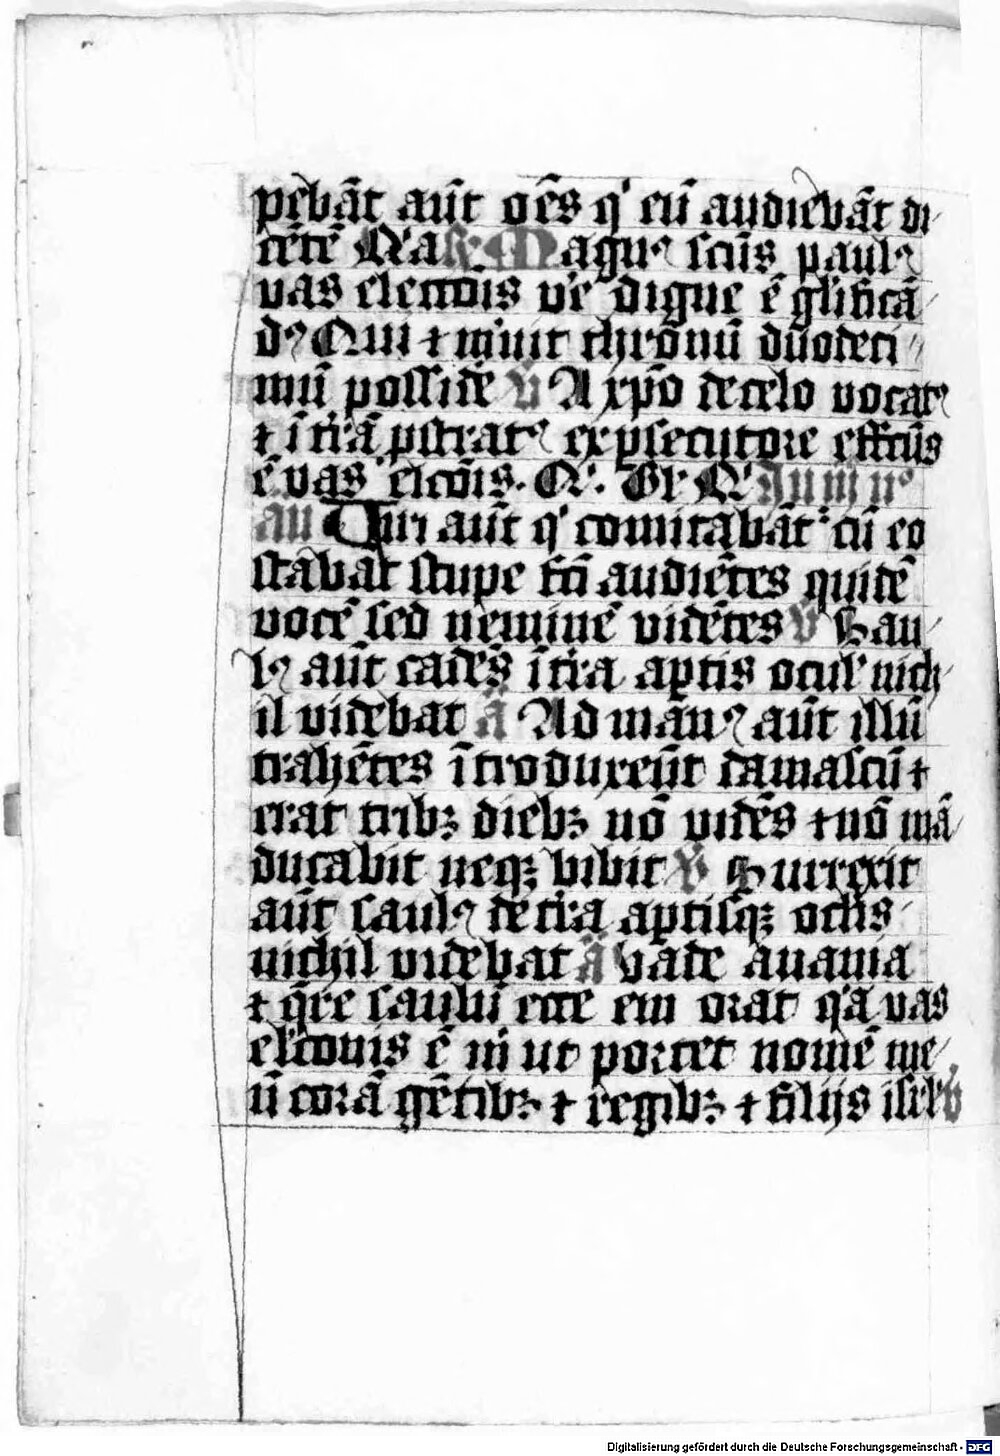 pebāt aūt oēs q' eū audiebāt di
cētē Magn⁹ scūs paul⁹
vas elecc̄ois v'e digne ē gl'ificā
d⁹ Qui ⁊ m'uit thronū duodeci
mū possidē v̄ A xp̄o de celo vocat⁹
⁊ ī t'rā pstrat⁹ ex psecutore effect⁹
ē vas elcōis.
aū Viri aūt q' comitabāt' cū eo
stābāt stupe fcī audiētes quidē
vocē sed neminē vidētes v̄ Sau
l⁹ aūt cadēs ī t'ra aptis ocul' nich
il videbat ā Ad man⁹ aūt illū
trahētes ītroduxerūt damascū ⁊
erat tribꝫ diebꝫ nō vidēs ⁊ nō mā
ducabit neqꝫ bibit v̄ Surrexit
aūt saul⁹ de t'ra aptisqꝫ oclis
nichil videbat ā vade anania
⁊ q̄re saulū ecce em orat q'a vas
el'ccōnis ē m' ut portet nomē me
ū corā gētibꝫ ⁊ regibꝫ ⁊ filijs isrl' v̄
Digitalisierung gefördert durch die Deutsche Forschungsgemeinschaft - DFG